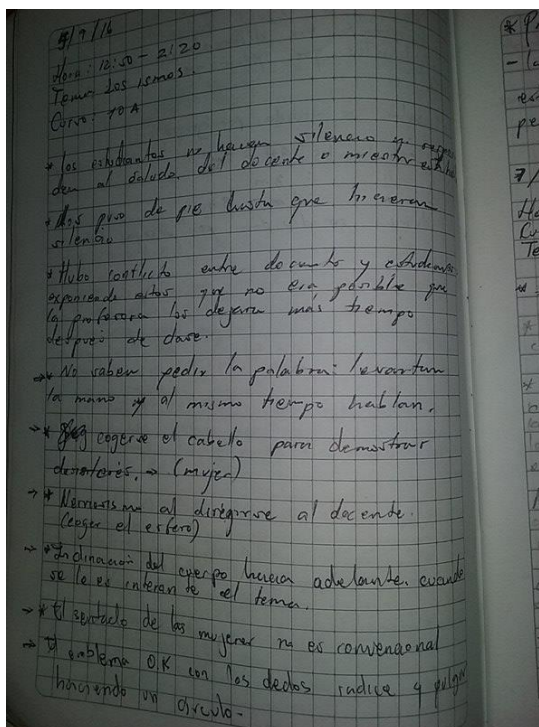 5/9/16
Hora: 12:50 - 2:20
Tema: Los ismos.
Curso: 10A
* los estudiantes no hacen silencio y
den al saludo del docente o
* los puso de pie hasta que hicieran
silencio
* Hubo conflicto entre docente y estudiantes
exponiendo estos que no era posible que
la profesora los dejara más tiempo
después de clase.
→* No saben pedir la palabra: levantan
la mano y al mismo tiempo hablan.
→* cogerse el cabello para demostrar
desinterés. → (mujer)
→* Nerviosismo al dirigirse al docente.
(coger el esfero)
→ * Inclinación del cuerpo hacia adelante cuando
se le es interesante el tema.
→ * El sentado de las mujeres no es convencional
→ El emblema O.K con los dedos indice y pulgar
haciendo un circulo-
7/